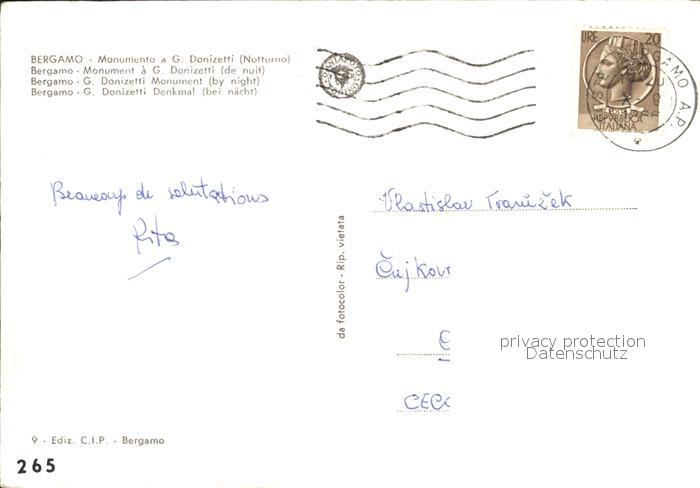 BERGAMO - Monumento a G. Donizetti (Notturno)
Bergamo - Monument à G. Donizetti (de nuit)
Bergamo - G. Donizetti Monument (by night)
Bergamo - G. Donizetti Denkmal (bei nächt)
LIRE 20
REPVBBLICA
ITALIANA
BERGAMO A.P.
Beaucoup de salutations
Rita
da fotocolor - Rip. vietata
Vlastislav
Čujkov
privacy protection
Datenschutz
CEC
9 - Ediz. C.I.P. - Bergamo
265